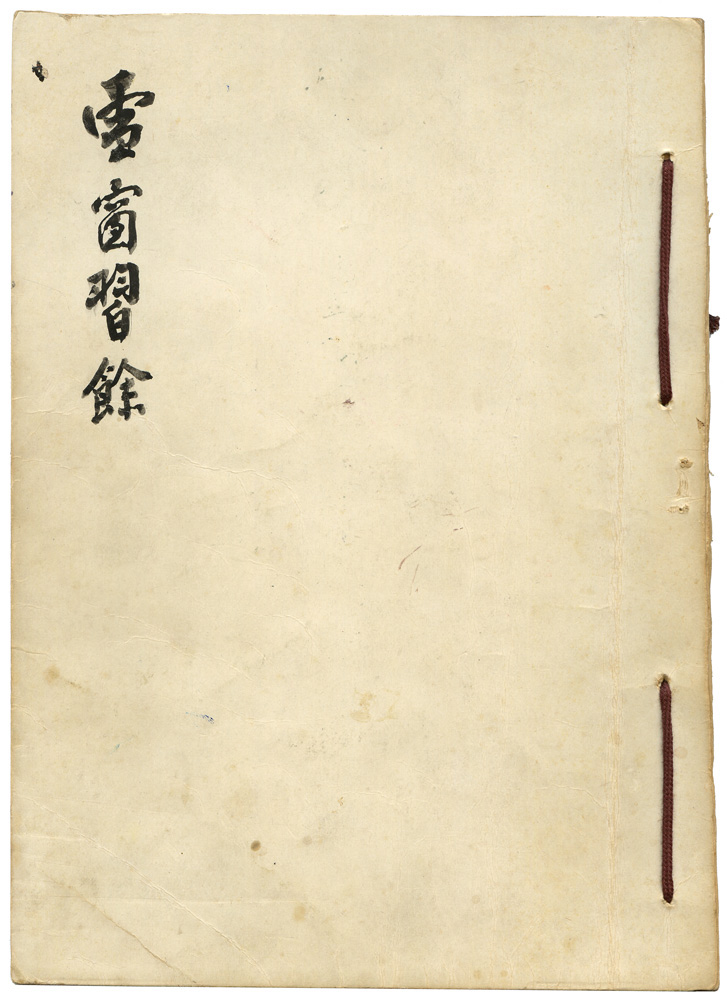 雪窗習餘